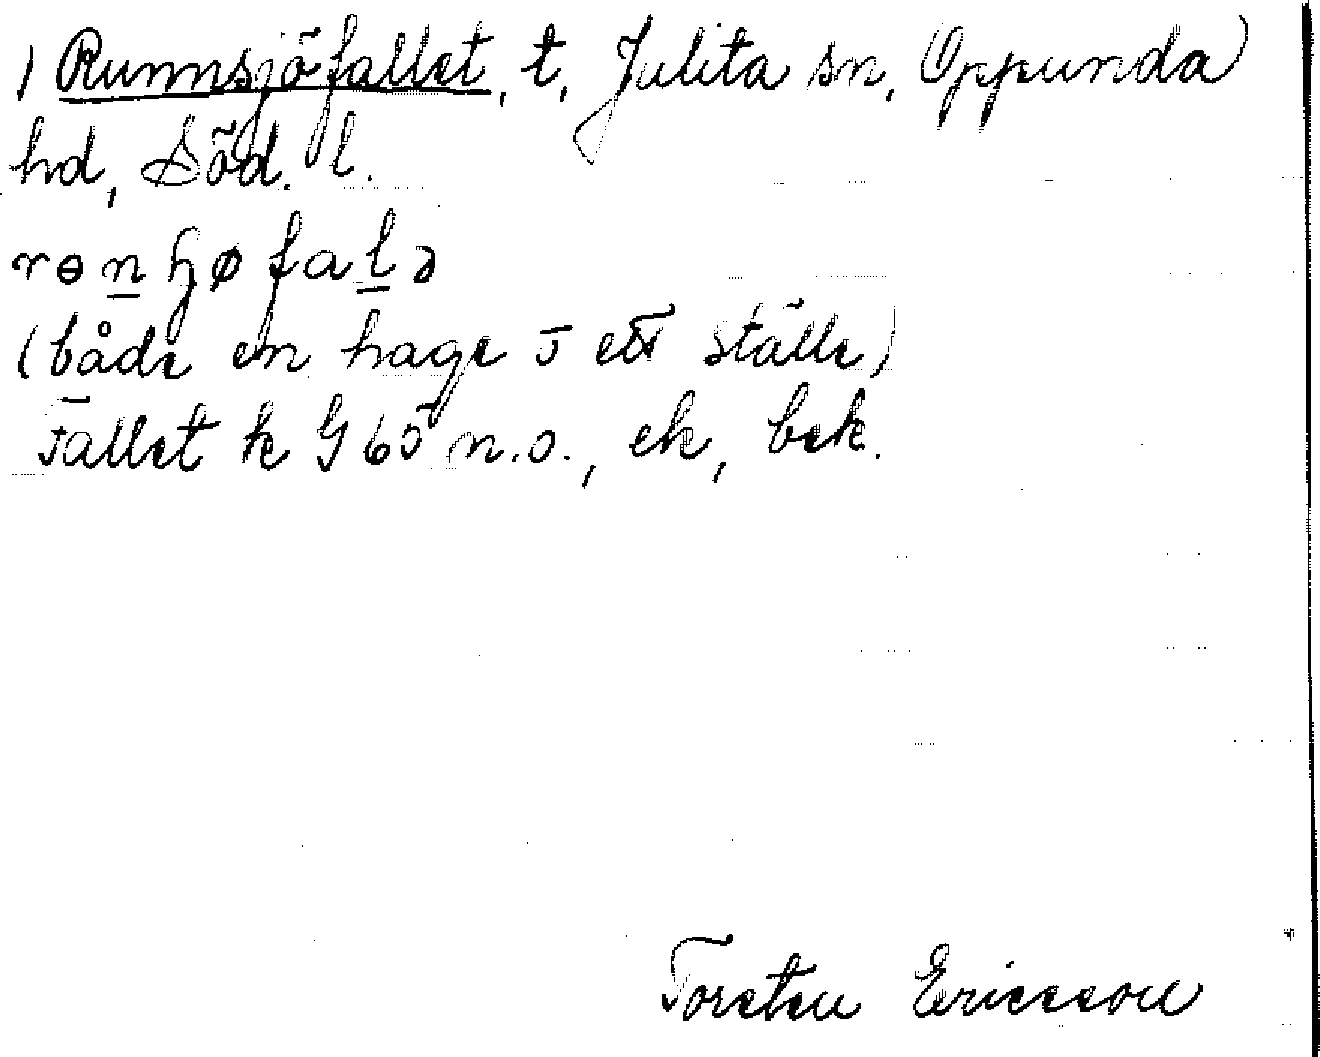 ) Runnsjöfallet, t, Julita sn, Oppunda
hd, Söd. l.
rɵn ɧø fa lə
(både en hage o ett ställe)
Fallet k G 65 n.o., ek, bek.
Torsten Ericsson